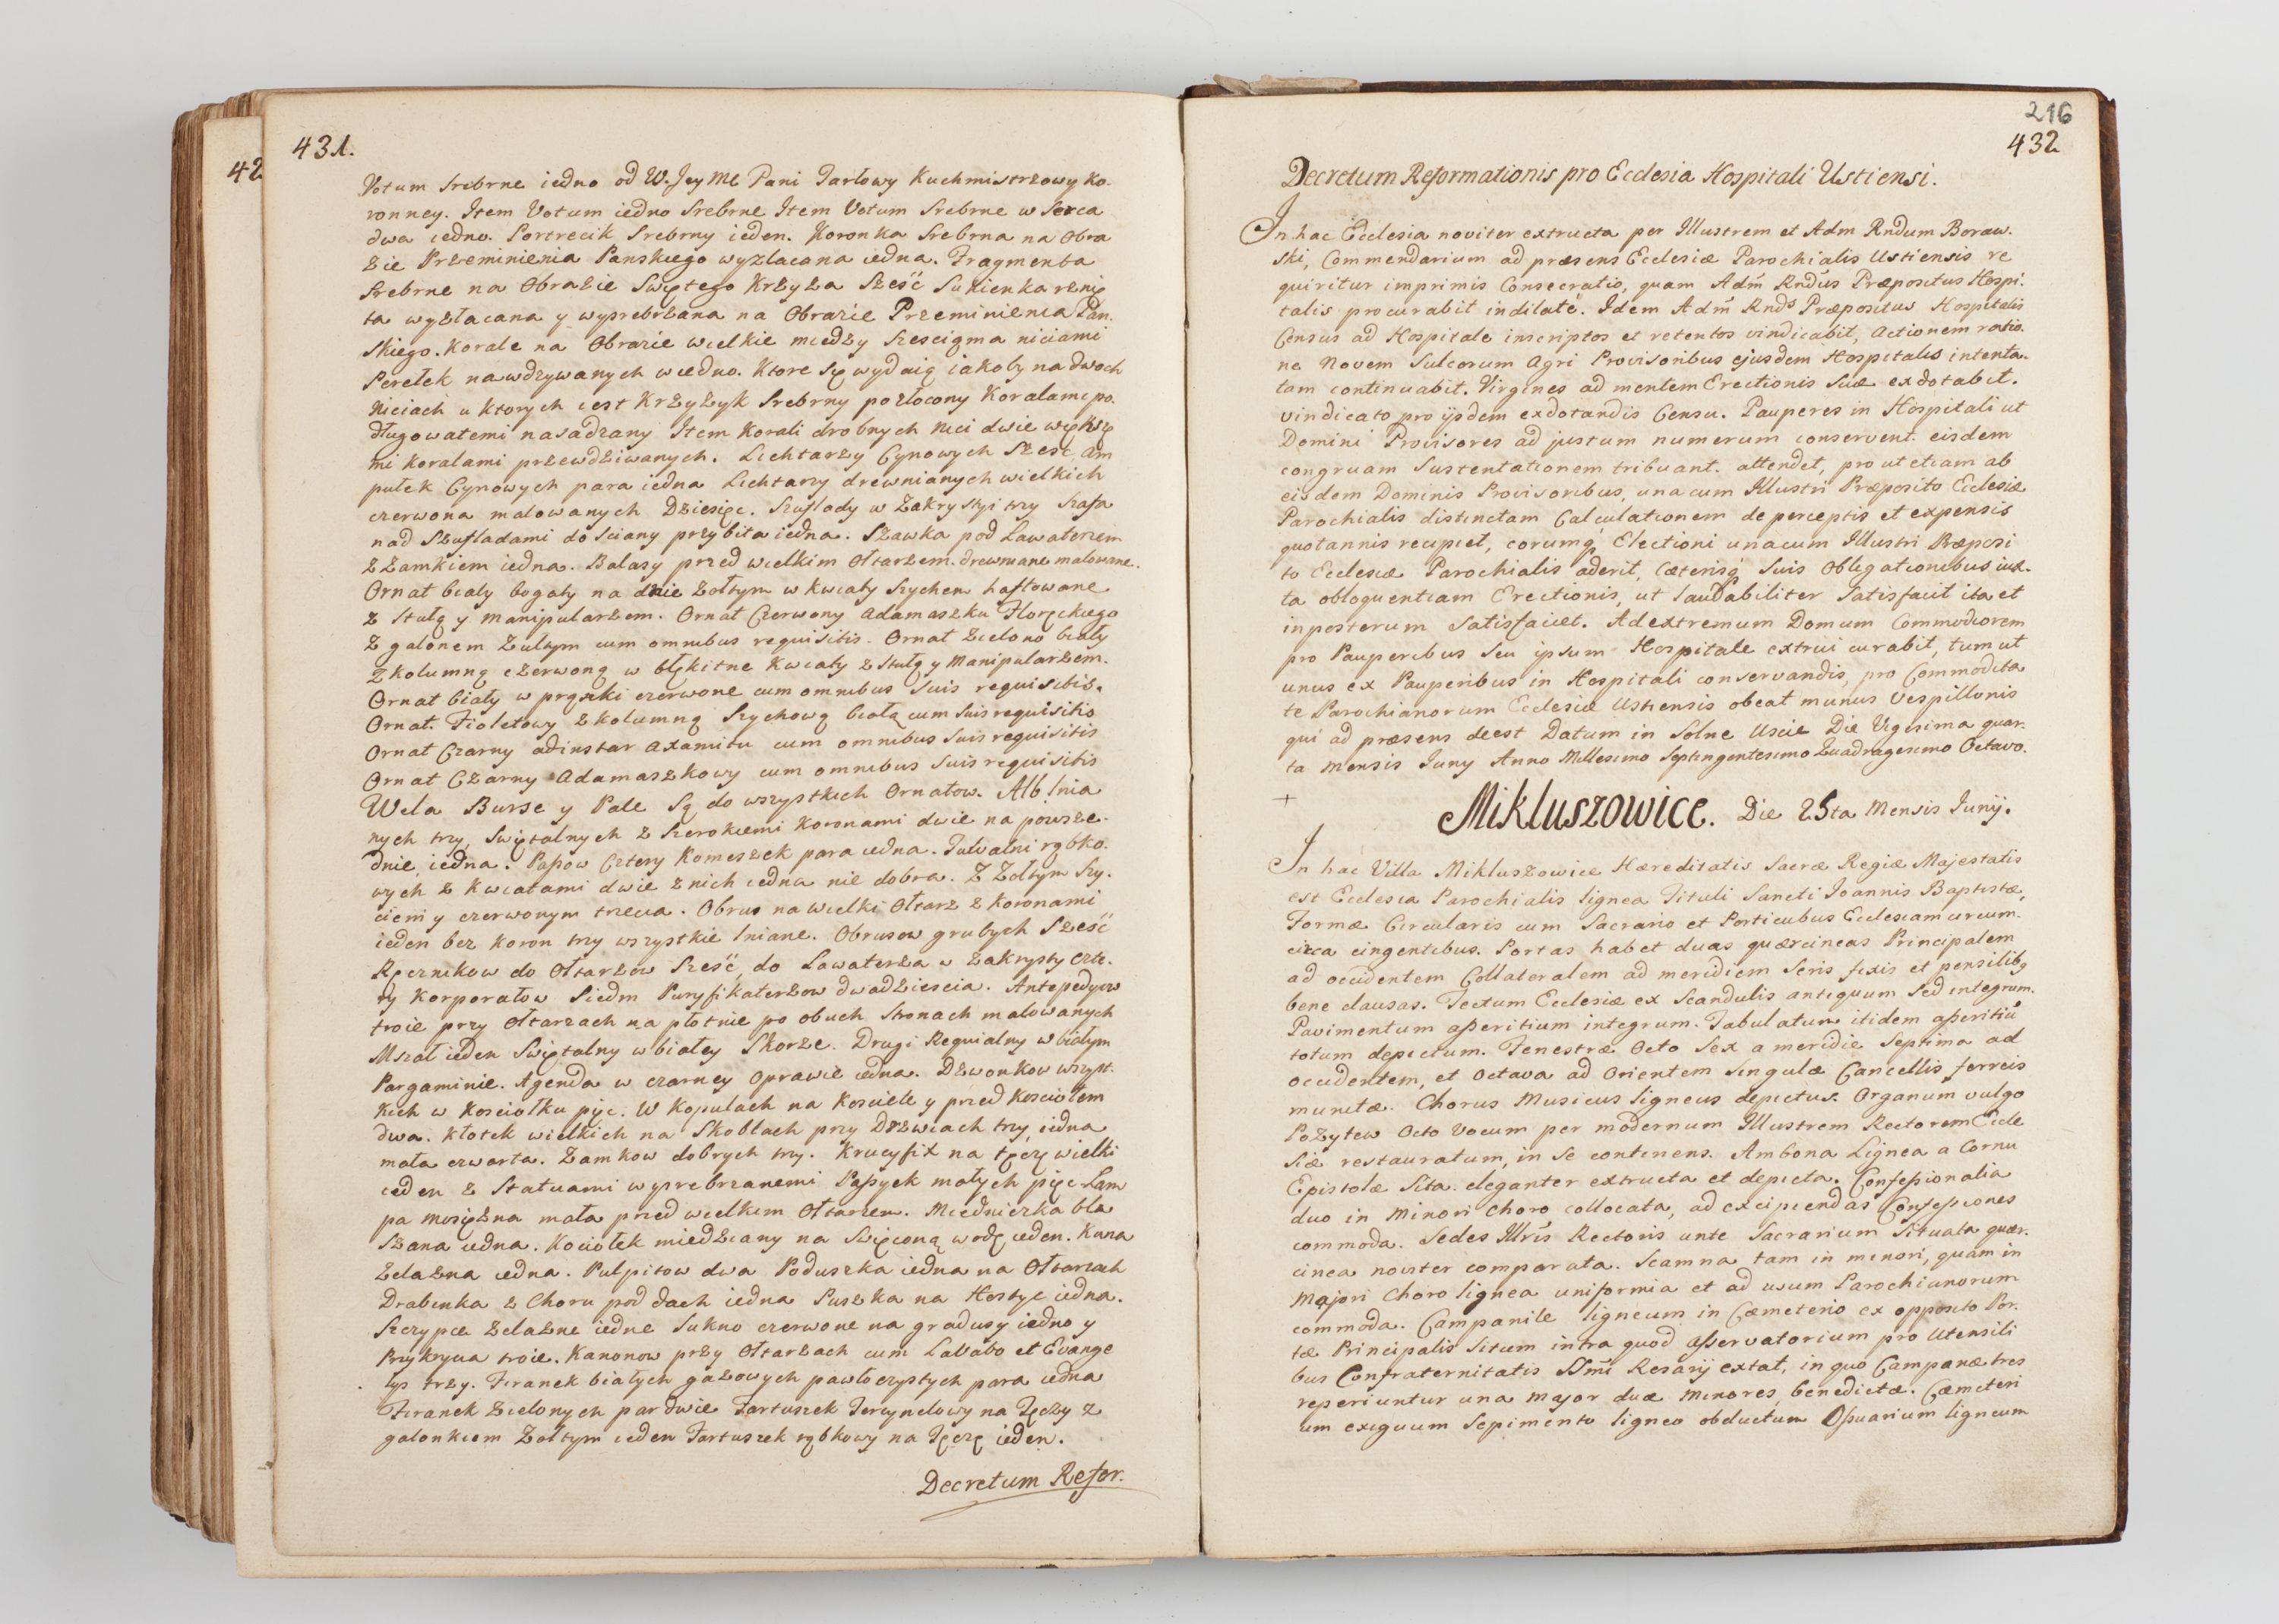 42
431.
Votum Srebrne iedno od W. Jey Mć Pani Tarłowy Kuchmistrzowy Ko-
ronney. Item Votum iedno Srebrne Item Votum Srebrne w Serca
dwa iedno. Portrecik Srebrny ieden. Koronka Srebrna na Obra
zie Przeminienia Panskiego wyzlacana iedna. Fragmenta
Srebrne na Obrazie Swiętego Krzyza Sześć Sukienka rznię
ta wyzłacana y wysrebrzana na Obrazie Przeminienia Pan-
skiego. Korale na Obrazie wielkie miedzy Sześcigma niciami
Perełek nawdzywanych wiedno. Ktore Się wydaią iakoby na dwoch
Niciach u ktorych iest Krzyżyk Srebrny pozłocony Koralami po-
długowatemi nasadzany Item Korali drobnych Nici dwie większę
mi koralami przewdziwanych. Lichtarzy Cynowych Szesć, Am
pułek Cynowych para iedna Lichtarzy drewnianych wielkich
czerwona malowanych Dziesięc. Szuflady w Zakrystyi trzy Szafa
nad Szufladami do Sciany przybita iedna. Szawka pod Lawaterzem
z Zamkiem iedna. Balasy przed wielkim Ołtarzem drewniane malowane.
Ornat biały bogaty na dnie żołtym w kwiaty Szychem haftowane
z Stułą y Manipularzem. Ornat Czerwony Adamaszku Floręckiego
z galonem Zułtym cum omnibus requisitis. Ornat Zielono biały
z kolumną czerwoną w błękitne Kwiaty z Stułą y Manipularzem.
Ornat biały w prążki czerwone cum omnibus Suis requisitis.
Ornat. Fioletowy z kolumną Szychową białą cum Suis requisitis
Ornat Czarny adinstar axamitu cum omnibus Suis requisitis
Ornat Czarny Adamaszkowy cum omnibus Suis requisitis
Wela Burse y Pale Są do wszystkich Ornatow. Alb lnia
nych trzy, Swiętalnych z Szerokiemi Koronami dwie na powsze-
dnie, iedna. Pasow Cztery Komeszek para iedna. Tuwalni rąbko-
wych z kwiatami dwie z nich iedna nie dobra. Z Zołtym Szy-
ciem y czerwonym trzecia. Obrus na wielki Ołtarz z Koronami
ieden bez koron trzy wszystkie lniane. Obrusow grubych Sześć
Ręcznikow do Ołtarzow Sześć, do Lawaterza w Zakrysty czte-
ry Korporałow Siedm Puryfikaterzow dwadziescia. Antepedyow
troie przy Ołtarzach na płotnie po obuch Stronach malowanych
Mszał ieden Swiętalny w białey Skorze. Drugi Requialny w białym
Pargaminie. Agenda w czarney Oprawie iedna. Dzwonkow wszyst-
kich w Kosciołku pięc. W Kopułach na Kosciele y przed Kosciołem
dwa. Kłotek wielkich na Skoblach przy Drzwiach trzy, iedna
mała czwarta. Zamkow dobrych trzy. Krucyfix na tęczę wielki
ieden z Statuami wysrebrzanemi Pasyek małych pięc Lam
pa mosiężna mała przed wielkim Ołtarzem. Miedniczka bla
szana iedna. Kociołek miedziany na Swięconą wodę ieden. Kuna
żelazna iedna. Pulpitow dwa Poduszka iedna na Ołtarzach
Drabinka z Choru pod dach iedna Puszka na Hostye iedna.
Szczypce żelazne iedne Sukno czerwone na gradusy iedno y
Przykrycia troie. Kanonow przy Ołtarzach cum Lavabo et Evange
lys trzy. Firanek białych gazowych pawłoczystych para iedna
Firanek Zielonych par dwie Fartuszek Tercynelowy na Tęczy z
galonkiem Zołtym ieden Fartuszek rąbkowy na Tęczę ieden.
Decretum Refor.
216
432
Decretum Reformationis pro Ecclesia Hospitali Ustiensi.
In hac Ecclesia noviter extructa per Illustrem et Adm Rndum Boraw-
ski, Commendarium ad præsens Ecclesiæ Parochialis Ustiensis re
quiritur imprimis Consecratio, quam Adm Rndus Præpositus Hospi-
talis procurabit indilaté. Idem Adm Rnds Præpositus Hospitalis
Census ad Hospitale inscriptos et retentos vindicabit, Actionem ratio-
ne Novem Sulcorum Agri Provisoribus ejusdem Hospitalis intenta-
tam continuabit. Virgines ad mentem Erectionis Suæ exdotabit.
vindicato pro ijsdem exdotandis Censu. Pauperes in Hospitali ut
Domini Provisores ad justum numerum conservent. eisdem
congruam Sustentationem tribuant. attendet, prout etiam ab
eisdem Dominis Provisoribus, unacum Illustri Præposito Ecclesiæ
Parochialis distinctam Calculationem de perceptis et expensis
quotannis recipiet, eorumq Electioni unacum Illustri Præposi
to Ecclesiæ Parochialis aderit, Cæterisq Suis Obligationibus iux-
ta obloquentiam Erectionis, ut Laudabiliter Satisfacit ita et
inposterum Satisfaciet. Adextremum Domum Commodiorem
pro Pauperibus Seu ipsum Hospitale extrui curabit, tum ut
unus ex Pauperibus in Hospitali conservandis, pro Commodita
te Parochianorum Ecclesiæ Ustiensis obeat munus Vespillonis
qui ad præsens deest Datum in Solne Uscie Die Vigesima quar-
ta Mensis Juny Anno Millesimo Septingentesimo Quadragesimo Octavo.
+
Mikluszowice. Die 25ta Mensis Junij.
In hac Villa Mikluszowice Hæreditatis Sacræ Regiæ Majestatis
est Ecclesia Parochialis lignea Tituli Sancti Joannis Baptistæ,
Formæ Circularis cum Sacrario et Porticubus Ecclesiam circum-
circa cingentibus. Portas habet duas quærcineas Principalem
ad occidentem Collateralem ad meridiem Seris fixis et pensilibq
bene clausas. Tectum Ecclesiæ ex Scandulis antiquum Sed integrum.
Pavimentum asseritium integrum. Tabulatum itidem asseritiu
totum depictum. Fenestræ Octo Sex a meridie Septima ad
occidentem, et Octava ad Orientem Singulæ Cancellis ferreis
munitæ. Chorus Musicus ligneus depictus. Organum vulgo
Pozytew Octo Vocum per modernum Illustrem Rectorem Eccle
siæ restauratum, in Se continens. Ambona Lignea a Cornu
Epistolæ Sita. eleganter extructa et depicta. Confessionalia
duo in Minori Choro collocata, ad excipiendas Confessiones
commoda. Sedes Illris Rectoris ante Sacrarium Situata quær-
cinea noviter comparata. Scamna tam in minori, quam in
Majori Choro lignea uniformia et ad usum Parochianorum
commoda. Campanile ligneum in Cæmeterio ex opposito Por-
tæ Principalis Situm intra quod asservatorium pro Utensili
bus Confraternitatis SSmi Rosarij extat, in quo Campanæ tres
reperiuntur una Major duæ Minores, benedictæ. Cæmeteri
um exiguum Sepimento ligneo obductum Ossuarium ligneum